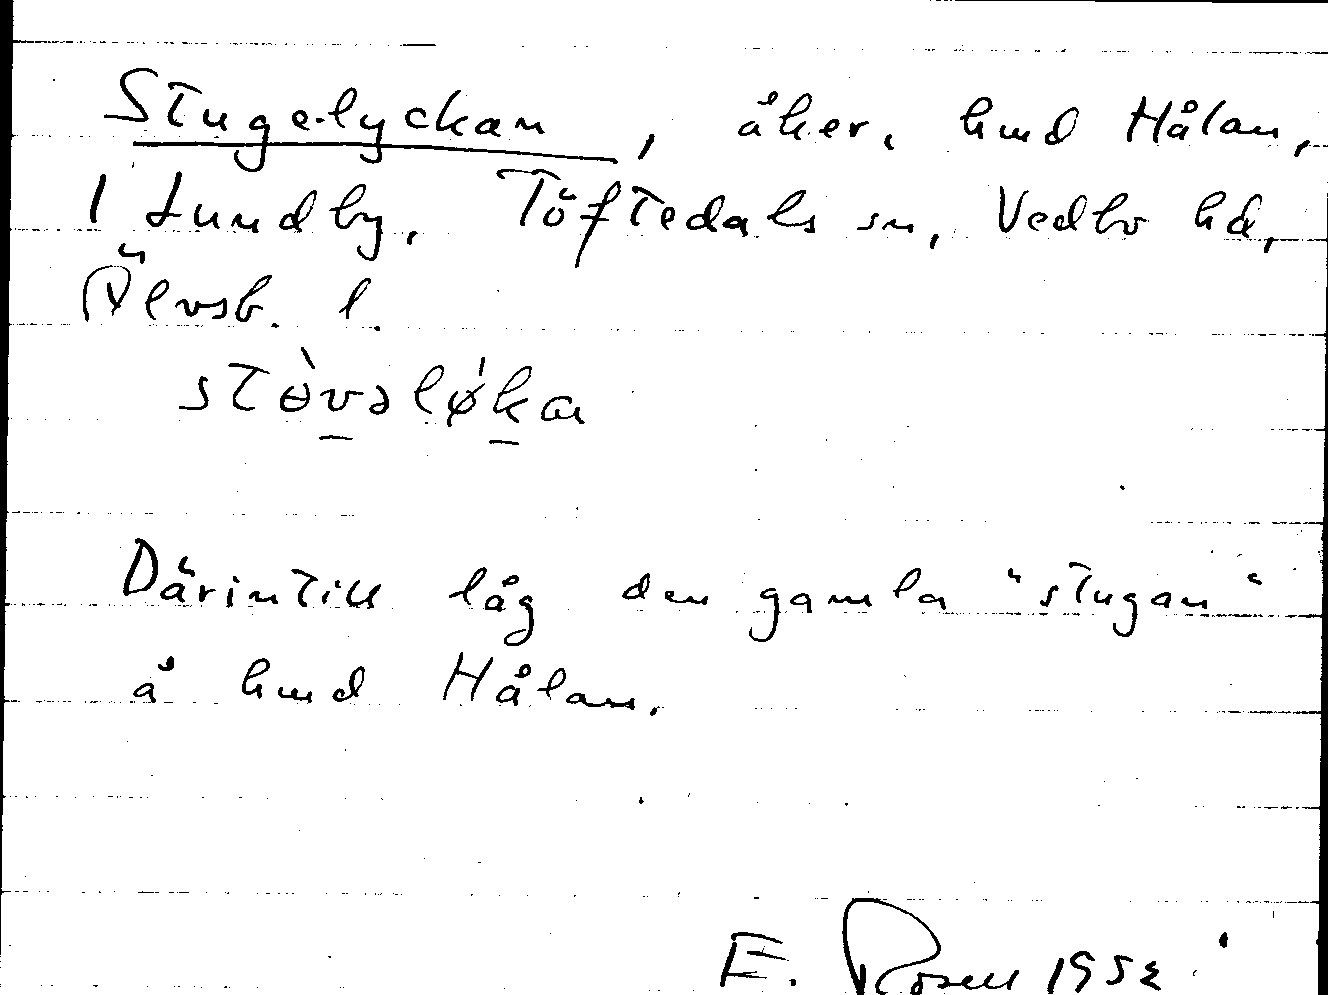 Stugelyckan, åker, hmd Hålan,
1 Lundby, Töftedals sn, Vedbo hd,
Älvsb. l.
stə̀vəlǿka
Därintill låg den gamla "stugan"
å hmd Hålan.
E. Rosell 1952